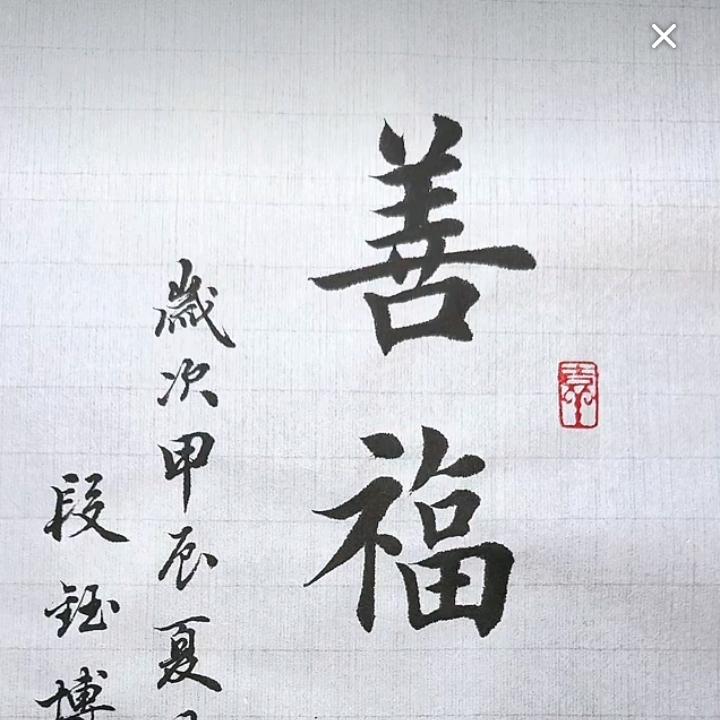 善福
歲次甲辰夏
段鈺博